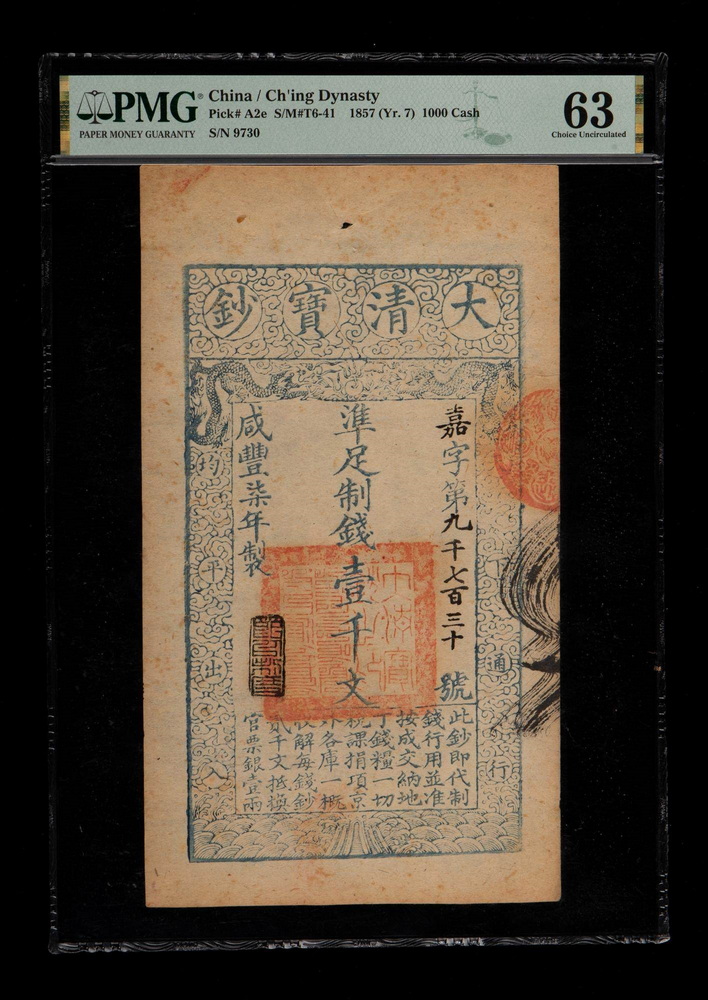 PMG®
PAPER MONEY GUARANTY
China / Ch'ing Dynasty
Pick# A2e S/M#T6-41 1857 (Yr. 7) 1000 Cash
S/N 9730
63
Choice Uncirculated
大清寶鈔
嘉字第九千七百三十號
準足制錢壹千文
咸豐柒年製
天下通行
均平出入
此鈔即代制
錢行用並准
按成交納地
丁錢糧一切
稅課捐項京
外各庫一概
收解每錢鈔
貳千文抵換
官票銀壹兩